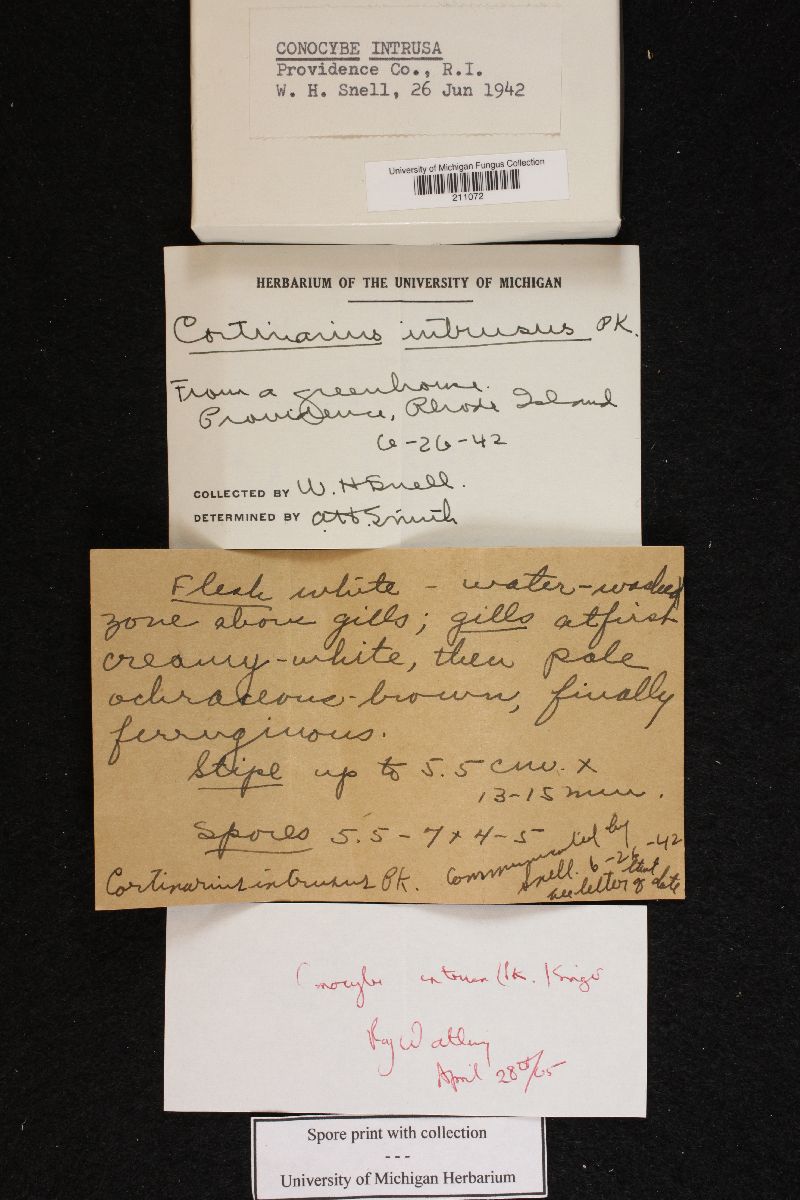 CONOCYBE INTRUSA
Providence Co., R.I.
W. H. Snell, 26 Jun 1942
University of Michigan Fungus Collection
211072
HERBARIUM OF THE UNIVERSITY OF MICHIGAN
Cortinarius intrusus PK.
From a greenhouse.
Providence, Rhode Island
6-26-42
COLLECTED BY W. H Snell.
DETERMINED BY AH Smith
Flesh white - water-washed
zone above gills; gills at first
creamy-white, then pale
ochraceous-brown, finally
ferruginous.
Stipe up to 5.5 cm. x
13-15 mm.
Spores 5.5 - 7 x 4-5
Communicated by
Snell. 6-26-42
see letter of that date
Cortinarius intrusus PK.
Conocybe intrusa (Pk.) Singer
Roy Watling
April 28th/65
Spore print with collection
---
University of Michigan Herbarium